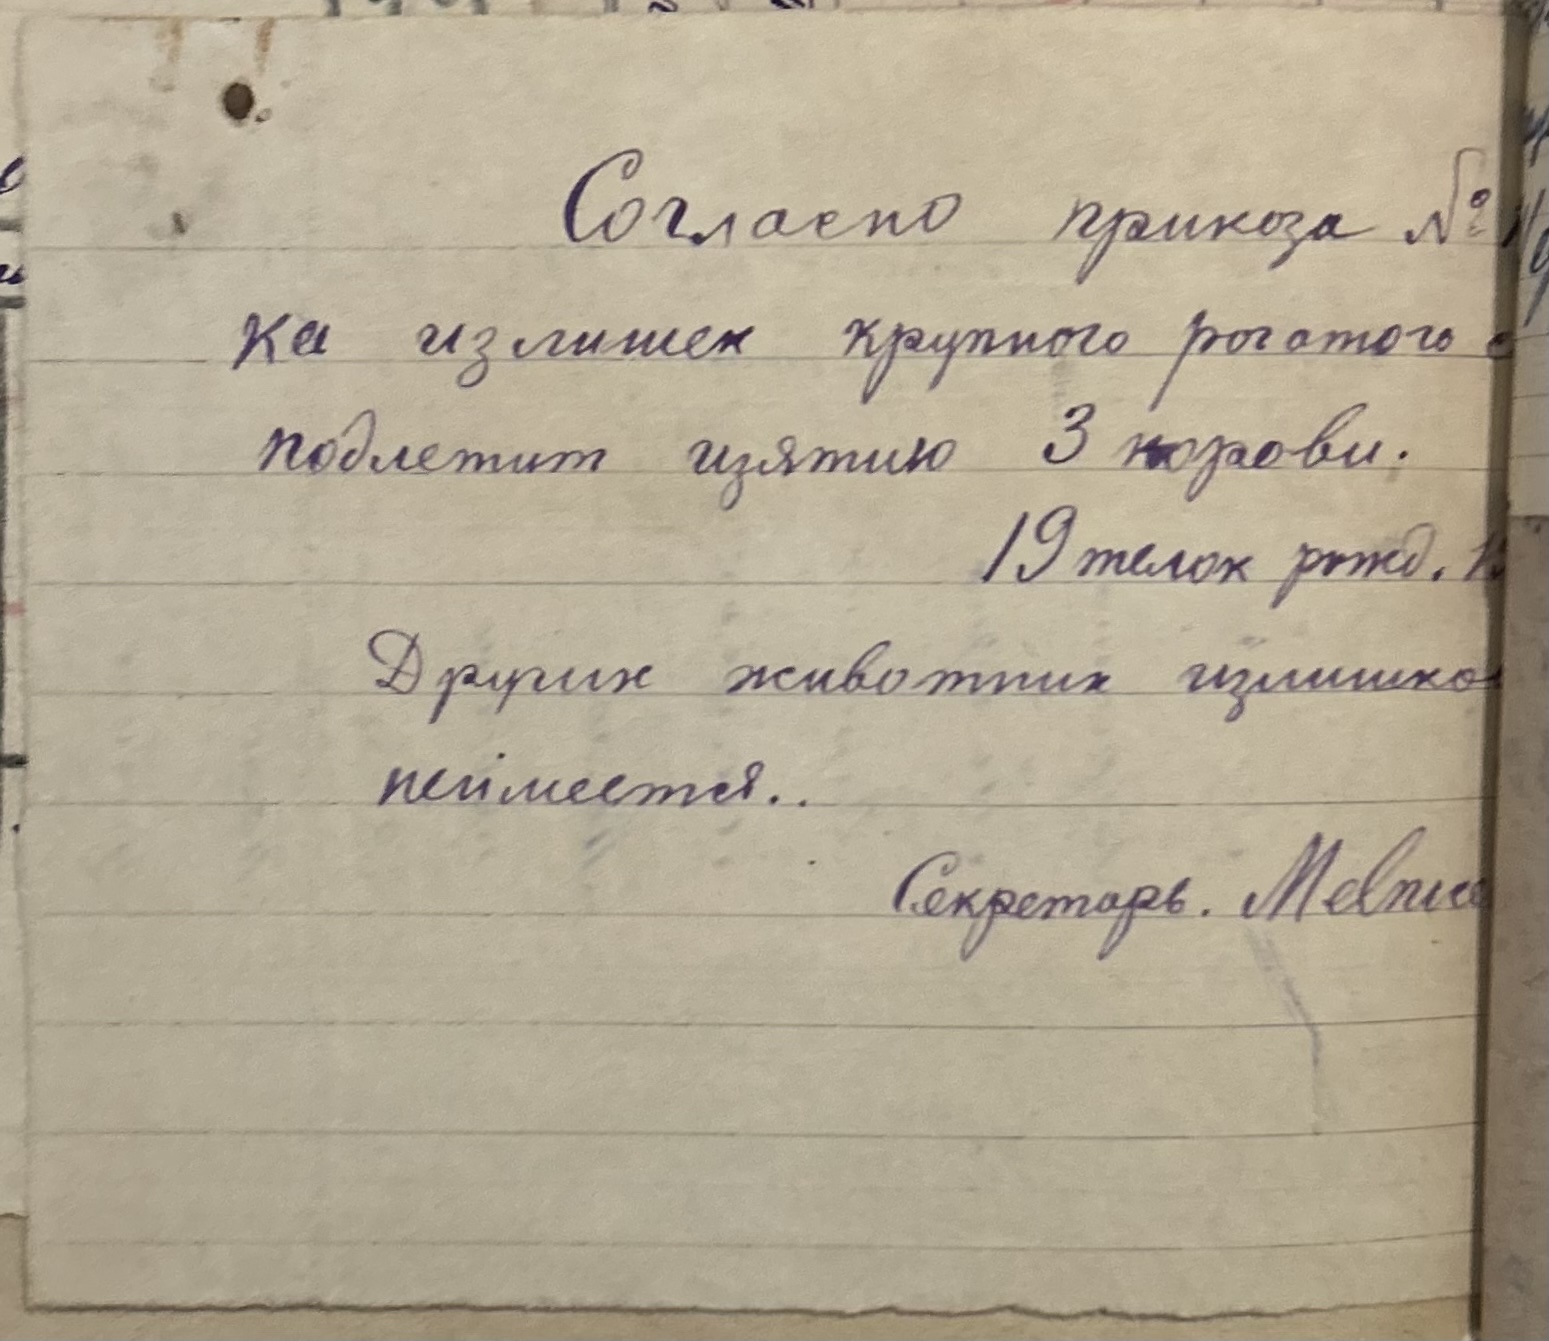 Согласно приказа №
ка излишек крупного рогатого
подлежит изятию 3 корови.
19 телок рожд.
Других животних излишко
неимеется..
Секретарь. Melnic